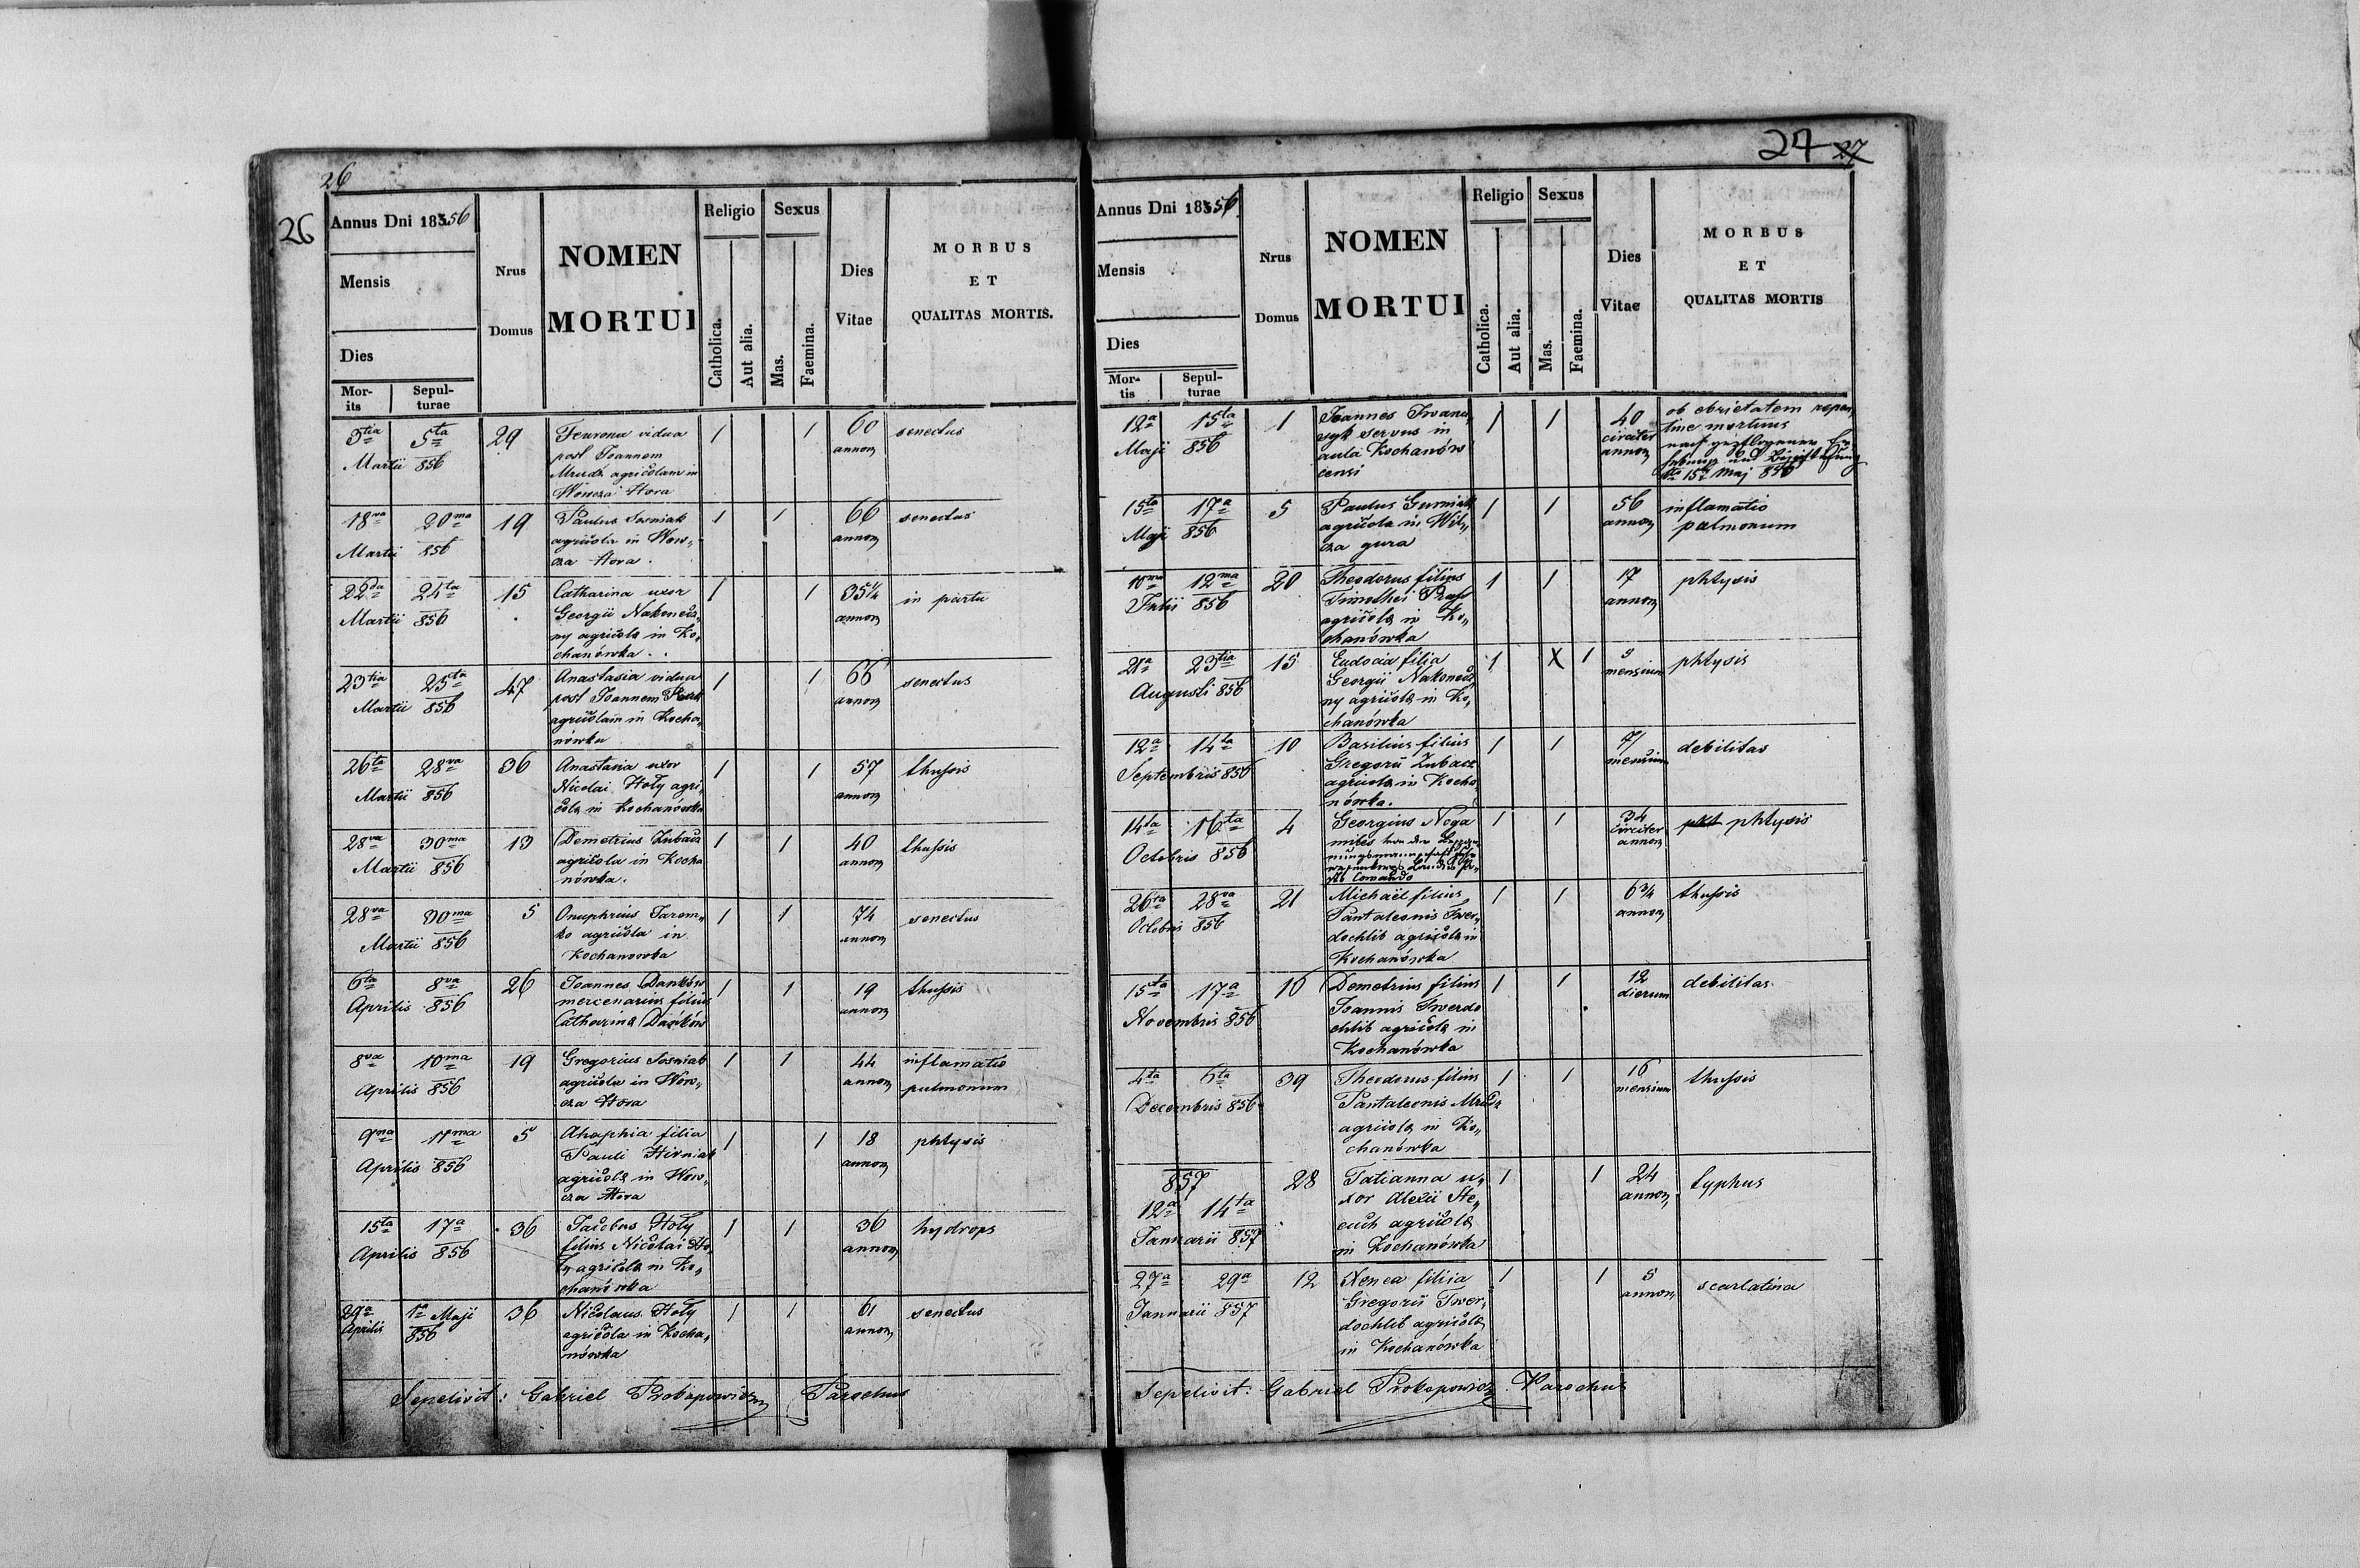 26
26
Annus Dni 18356
Mensis
Dies
Mor-
its
Sepul-
turae
Nrus
Domus
NOMEN
MORTUI
Religio
Catholica.
Aut alia.
Sexus
Mas.
Faemina.
Dies
Vitae
MORBUS
ET
QUALITAS MORTIS.
3tia 5ta
Martii 856
29
Feurona vidua
post Joannem
Mrudz agricolam in
Wowcza Hora
1 1
60
annor
senectus
18va 20ma
Martii 856
19
Paulus Sosniak
agricola in Wow„
cza Hora.
1 1
66
annor
senectus
22da 24ta
Martii 856
15
Catharina uxor
Georgii Nakonecz„
ny agricolæ in Ko„
chanówka..
1 1
35 1/4
annor
in partu
23tia 25ta
Martii 856
47
Anastasia vidua
post Joannem
agricolam in Kocha„
nówka
1 1
66
annor
senectus
26ta 28va
Martii 856
36
Anastasia uxor
Nicolai Hoły agri„
colæ in Kochanówka
1 1
57
annor
thussis
28va 30ma
Martii 856
13
Demetrius Zubacz
agricola in Kocha
nówka.
1 1
40
annor
thussis
28va 30ma
Martii 856
5
Onuphrius Jarem„
ko agricola in
Kochanowka
1 1
74
annor
senectus
6ta 8va
Aprilis 856
26
Joannes Danków
mercenarius filius
Catharinæ Danków
1 1
19
annor
thussis
8va 10ma
Aprilis 856
19
Gregorius Sosniak
agricola in Wow„
cza Hora
1 1
44
annor
inflamatio
pulmonum
9na 11ma
Aprilis 856
5
Ahaphia filia
Pauli Hirniak
agricolæ in Wow„
cza Hora
1 1
18
annor
phtysis
15ta 17a
Aprilis 856
36
Jacobus Hoły
filius Nicolai Ho„
ły agricolæ in Ko„
chanówka
1 1
36
annor
hydrops
29a
Aprilis
1a Maji
856
36
Nicolaus Hoły
agricola in Kocha„
nówka
1 1
61
annor
senectus
Sepelivit: Gabriel Prokopowicz Parochus
27 27
Annus Dni 18356
Mensis
Dies
Mor-
tis
Sepul-
turae
Nrus
Domus
NOMEN
MORTUI
Religio
Catholica.
Aut alia.
Sexus
Mas.
Faemina.
Dies
Vitae
MORBUS
ET
QUALITAS MORTIS
12a 15ta
Maji 856
1
Joannes Iwanu„
syk servus in
aula Kochanów
censi
1 1
40
circiter
annor
ob ebrietatem repen„
tine mortuus
nach gepflogener
und
15 Maj 856
15ta 17a
Maji 856
5
Paulus Gurniak
agricola in Wil„
cza gura
1 1
56
annor
inflamatio
pulmonum
10ma 12ma
Julii 856
20
Theodorus filius
Timothei
agricolæ in Ko„
chanówka
1 1
17
annor
phtysis
21a 23tia
Augusti 856
15
Eudocia filia
Georgii Nakonecz„
ny agricolæ in Ko„
chanówka
1 X 1
9
mensium
phtysis
12a 14ta
Septembris 856
10
Basilius filius
Gregorii Zubacz
agricolæ in Kocha
nówka.
1 1
7/
mensium
debilitas
14ta 16ta
Octobris 856
4
Georgius Noga
miles von der

Comando
1 1
34
circiter
annor
phtysis
26ta 28va
Octobris 856
21
Michaël filius
Pantaleonis Twer„
dochlib agricolæ in
Kochanówka
1 1
6 3/4
annor
thussis
15ta 17a
Novembris 856
16
Demetrius filius
Joannis Twerdo
chlib agricolæ in
Kochanówka
1 1
12
dierum
debilitas
4ta 6ta
Decembris 856
39
Theodorus filius
Pantaleonis Mrudz
agricolæ in Ko„
chanówka
1 1
16
mensium
thussis
857
12a 14ta
Januarii 857
28
Tatianna u„
xor Alexii Ste„
cuch agricolæ
in Kochanówka
1 1
24
annor
typhus
27a 29a
Januarii 857
12
Nenea filia
Gregorii Twer„
dochlib agricolæ
in Kochanówka
1 1
5
annor
scarlatina
Sepelivit: Gabriel Prokopowicz Parochus